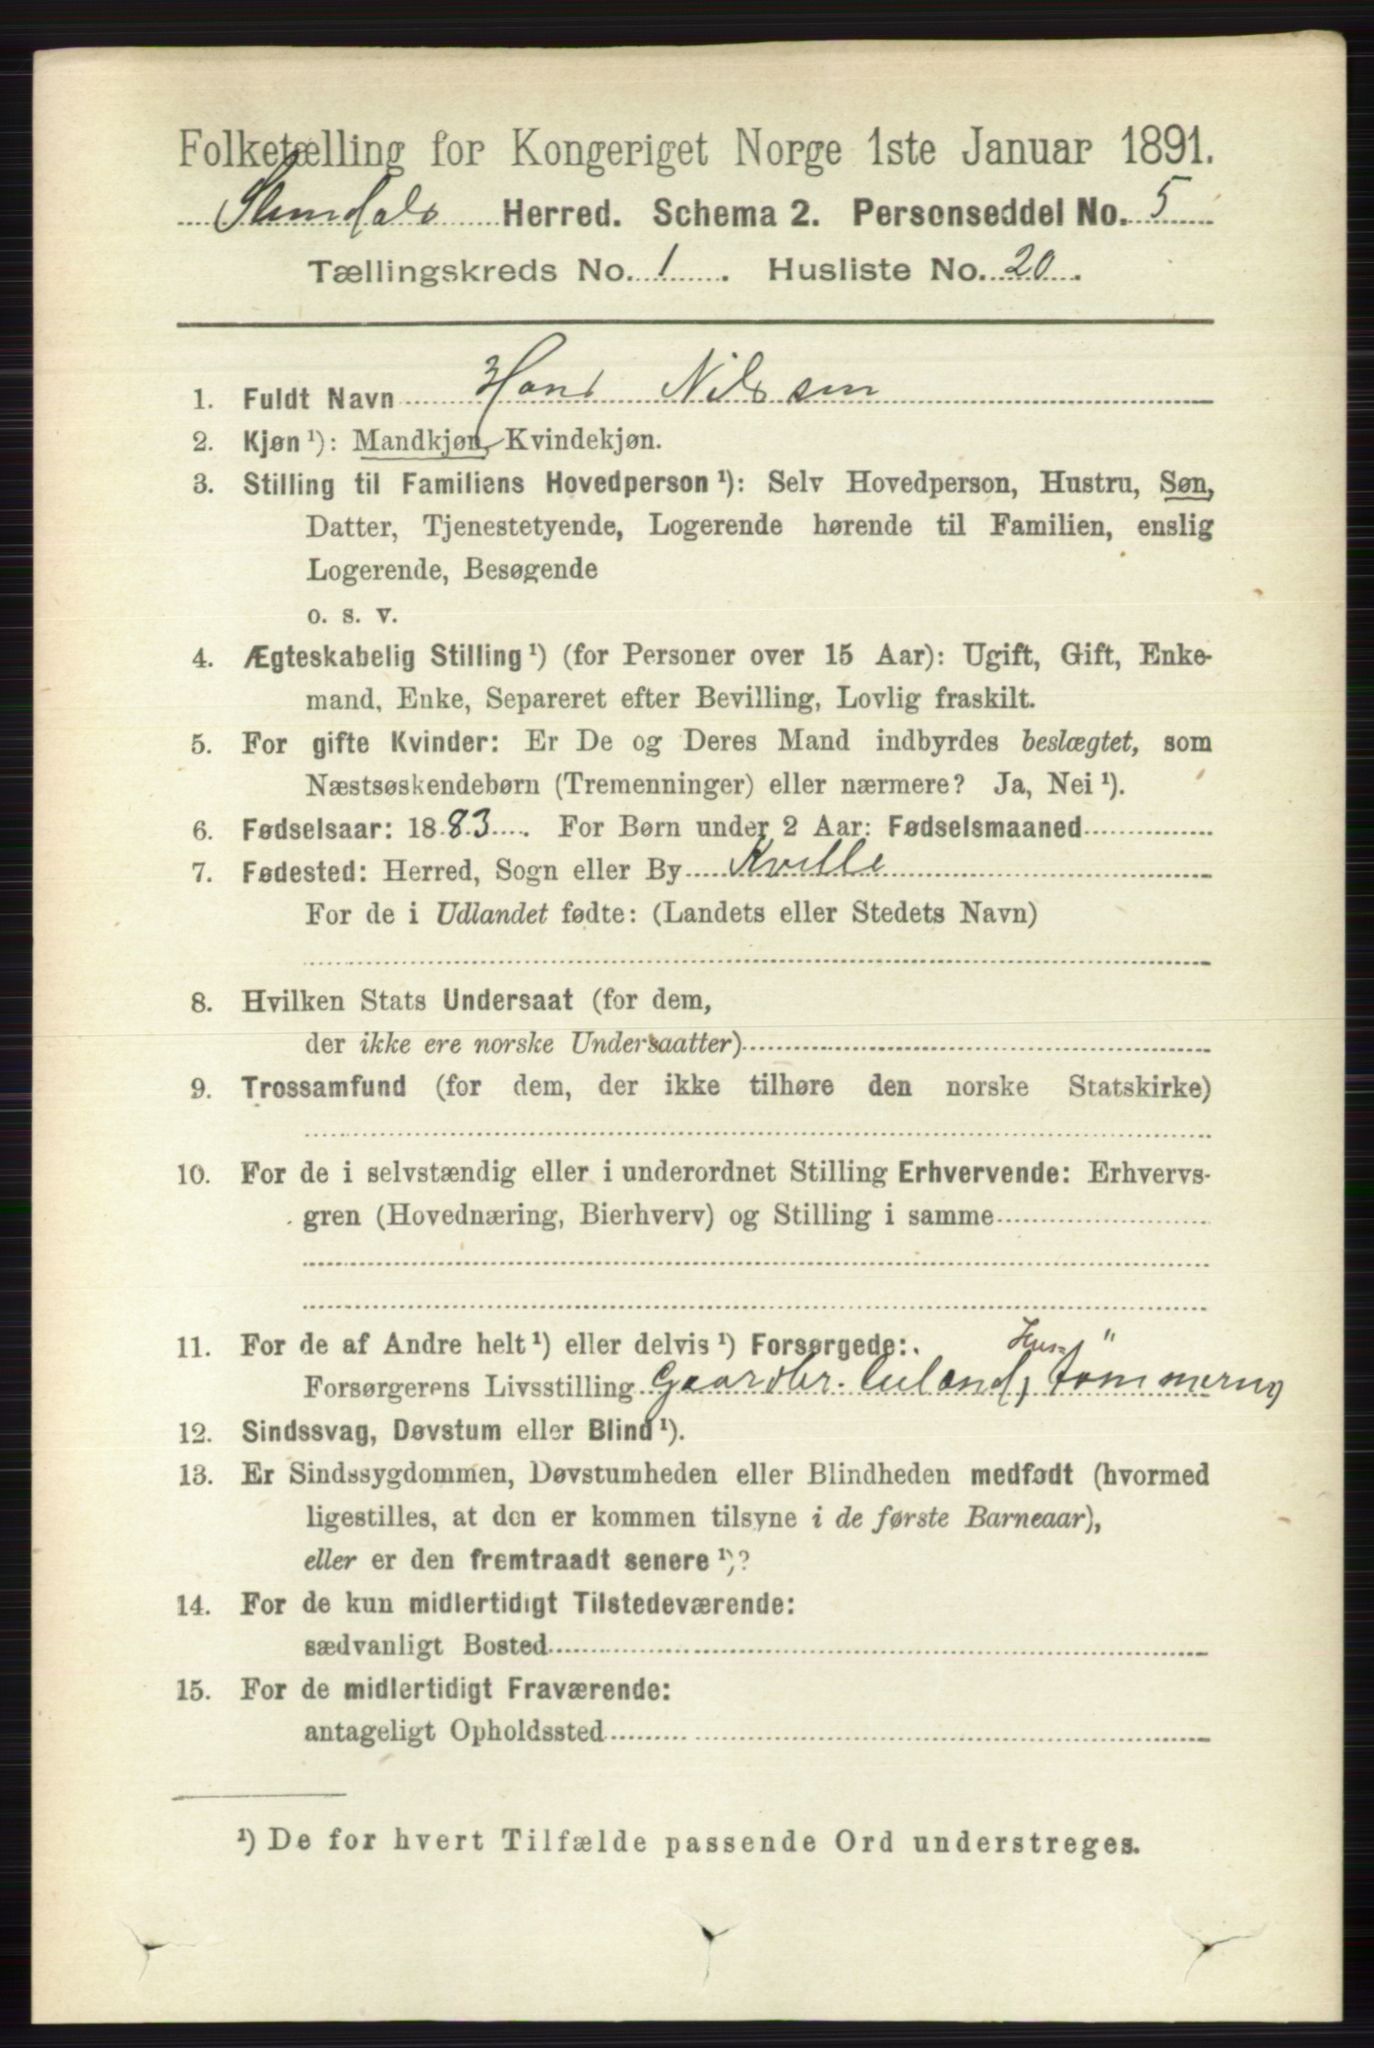 Folketælling for Kongeriget Norge 1ste Januar 1891.
Slemdals Herred. Schema 2. Personseddel No. 5
Tællingskreds No. 1. Husliste No. 20.
1. Fuldt Navn Hans Nilssen
2. Kjøn ¹): Mandkjøn, Kvindekjøn.
3. Stilling til Familiens Hovedperson ¹): Selv Hovedperson, Hustru, Søn,
Datter, Tjenestetyende, Logerende hørende til Familien, enslig
Logerende, Besøgende
o. s. v.
4. Ægteskabelig Stilling ¹) (for Personer over 15 Aar): Ugift, Gift, Enke-
mand, Enke, Separeret efter Bevilling, Lovlig fraskilt.
5. For gifte Kvinder: Er De og Deres Mand indbyrdes beslægtet, som
Næstsøskendebørn (Tremenninger) eller nærmere? Ja, Nei ¹).
6. Fødselsaar: 1883. For Børn under 2 Aar: Fødselsmaaned
7. Fødested: Herred, Sogn eller By Kville
For de i Udlandet fødte: (Landets eller Stedets Navn)
8. Hvilken Stats Undersaat (for dem,
der ikke ere norske Undersaatter)
9. Trossamfund (for dem, der ikke tilhøre den norske Statskirke)
10. For de i selvstændig eller i underordnet Stilling Erhvervende: Erhvervs-
gren (Hovednæring, Bierhverv) og Stilling i samme
11. For de af Andre helt ¹) eller delvis ¹) Forsørgede: Hus "
Forsørgerens Livsstilling Gaardbr. tømmerm
12. Sindssvag, Døvstum eller Blind ¹).
13. Er Sindssygdommen, Døvstumheden eller Blindheden medfødt (hvormed
ligestilles, at den er kommen tilsyne i de første Barneaar),
eller er den fremtraadt senere ¹)?
14. For de kun midlertidigt Tilstedeværende:
sædvanligt Bosted
15. For de midlertidigt Fraværende:
antageligt Opholdssted
¹) De for hvert Tilfælde passende Ord understreges.